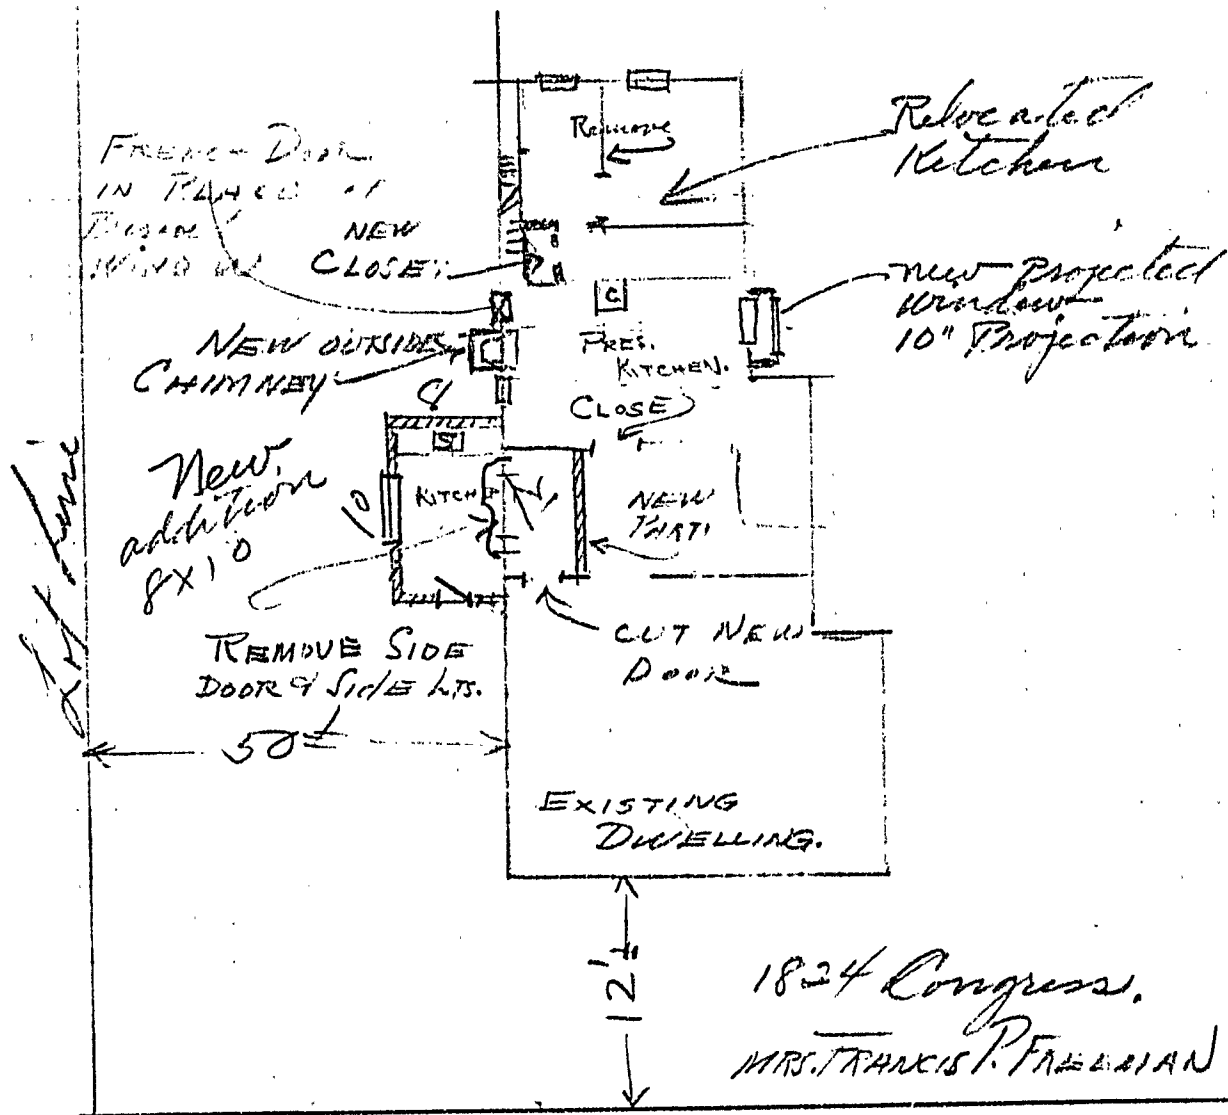 Relocated
Kitchen
Remove
FRENCH DOOR
IN PLACE OF
WINDOW
NEW
CLOSET
C
New Projected
Window
10" Projection
NEW OUTSIDE
CHIMNEY
PRES.
KITCHEN.
CLOSE
8
S
New
addition
8x10
10
KITCH
NEW
PART.
Lot Line
REMOVE SIDE
DOOR & SIDE LTS.
CUT NEW
DOOR
50'±
EXISTING
DWELLING.
12'±
1824 Congress.
MRS. FRANCIS P. FREEMAN